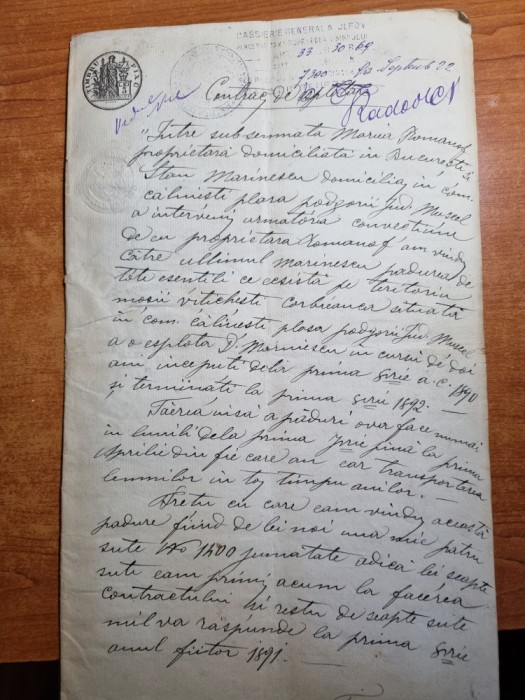 CASSIERIE GENERALA ILFOV
33 20 69
Septemb 92
Contract de
"Intre subsemnata Maria Romanof
proprietara domiciliata in Bucuresti si
Stan Marinescu domiciliat in com.
călinesti plasa podgorii jud. Muscel
a intervenit urmatória conventiune
de eu proprietara Romanof am vindut
către ultimul Marinescu padurea de
tóte esentiile ce ecsistă pe teritoriu
mosii vitichesti corbianca situată
in com. călinesti plasa podgorii Jud Muscel
a o esplota D. Marinescu in curs de doi
ani inceputi dela prima a.c. 1890
si terminati la prima 1892. —
Tăerea insă a păduri o va face numai
in lunili dela prima pină la prima
Aprilie din fie care an ear transportarea
lemnilor in tot timpu anilor. —
Pretu cu care eam vindut acestă
padure fiind de lei noi una mie patru
sute No 1400 jumatate adică lei seapte
sute eam primit acum la facerea
contractului iar restu de seapte sute
mil va raspunde la prima
anul fiitor 1891. —